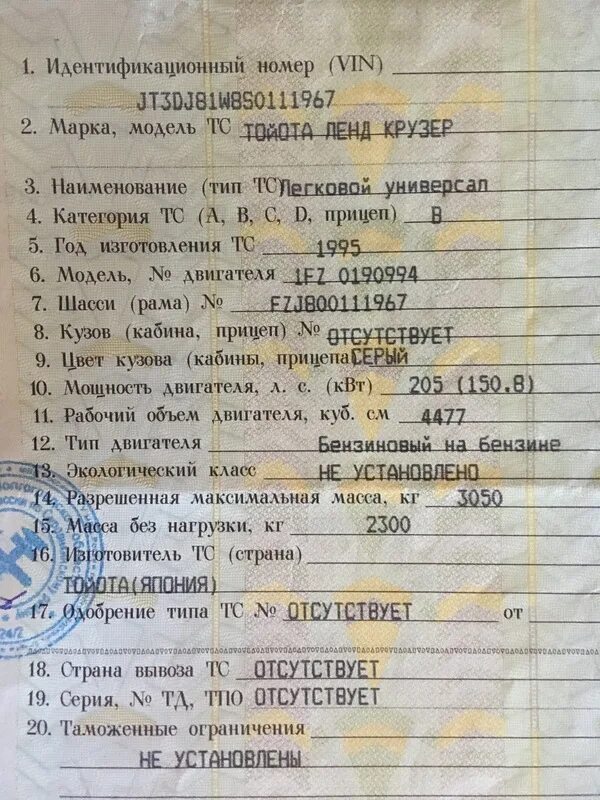 1. Идентификационный номер (VIN)
JT3DJ81W8S0111967
2. Марка, модель ТС ТОЙОТА ЛЕНД КРУЗЕР
3. Наименование (тип ТС) Легковой универсал
4. Категория ТС (A, B, C, D, прицеп) В
5. Год изготовления ТС 1995
6. Модель, № двигателя 1FZ 0190994
7. Шасси (рама) № FZJ800111967
8. Кузов (кабина, прицеп) № ОТСУТСТВУЕТ
9. Цвет кузова (кабины, прицепа) СЕРЫЙ
10. Мощность двигателя, л. с. (кВт) 205 (150.8)
11. Рабочий объем двигателя, куб. см 4477
12. Тип двигателя Бензиновый на бензине
13. Экологический класс НЕ УСТАНОВЛЕНО
14. Разрешенная максимальная масса, кг 3050
15. Масса без нагрузки, кг 2300
16. Изготовитель ТС (страна)
ТОЙОТА(ЯПОНИЯ)
17. Одобрение типа ТС № ОТСУТСТВУЕТ от
24/2
18. Страна вывоза ТС ОТСУТСТВУЕТ
19. Серия, № ТД, ТПО ОТСУТСТВУЕТ
20. Таможенные ограничения
НЕ УСТАНОВЛЕНЫ